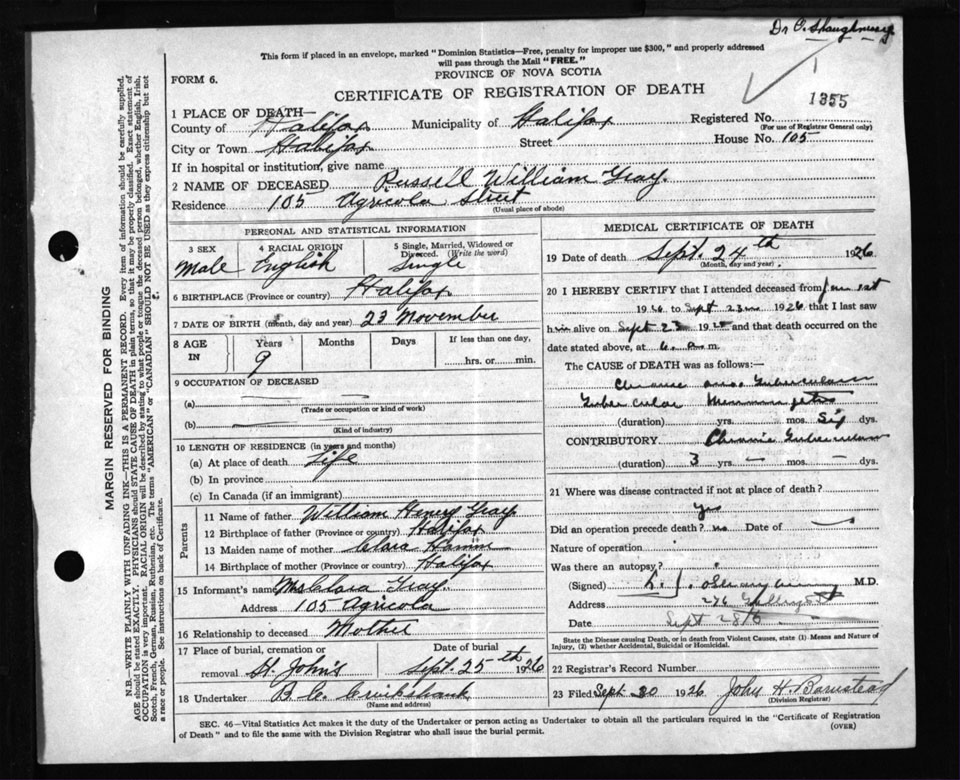 Dr O. Shaughnessy
This form if placed in an envelope, marked "Dominion Statistics—Free, penalty for improper use $300," and properly addressed
will pass through the Mail "FREE."
PROVINCE OF NOVA SCOTIA
FORM 6.
CERTIFICATE OF REGISTRATION OF DEATH
1355
1 PLACE OF DEATH—
County of Halifax Municipality of Halifax Registered No.
(For use of Registrar General only)
City or Town Halifax Street House No. 105
If in hospital or institution, give name
2 NAME OF DECEASED Russell William Gray.
Residence 105 Agricola Street
(Usual place of abode)
PERSONAL AND STATISTICAL INFORMATION
3 SEX 4 RACIAL ORIGIN 5 Single, Married, Widowed or Divorced. (Write the word)
Male English Single
6 BIRTHPLACE (Province or country) Halifax
7 DATE OF BIRTH (month, day and year) 23 November
8 AGE IN Years Months Days If less than one day,
9 hrs. or min.
9 OCCUPATION OF DECEASED
(a)
(Trade or occupation or kind of work)
(b)
(Kind of industry)
10 LENGTH OF RESIDENCE (in years and months)
(a) At place of death Life
(b) In province
(c) In Canada (if an immigrant)
Parents
11 Name of father William Henry Gray
12 Birthplace of father (Province or country) Halifax
13 Maiden name of mother Clara
14 Birthplace of mother (Province or country) Halifax
15 Informant's name Mrs Clara Gray.
Address 105 Agricola
16 Relationship to deceased Mother
17 Place of burial, cremation or removal Date of burial
St. John's Sept. 25th 1926
18 Undertaker B. C. Cruikshank
(Name and address)
MEDICAL CERTIFICATE OF DEATH
19 Date of death Sept. 24th 1926
(Month, day and year)
20 I HEREBY CERTIFY that I attended deceased from
1926 to Sept 23 1926 that I last saw
him alive on Sept 23 19 and that death occurred on
date stated above, at 6. a.m.
The CAUSE OF DEATH was as follows:—
Chronic
Tubercular
(duration) yrs. mos. Six dys.
CONTRIBUTORY Chronic
(duration) 3 yrs. — mos. — dys.
21 Where was disease contracted if not at place of death?
yes
Did an operation precede death? no Date of —
Nature of operation
Was there an autopsy?
(Signed) M.D.
Address 276
Date Sept 28
State the Disease causing Death, or in death from Violent Causes, state (1) Means and Nature of
Injury, (2) whether Accidental, Suicidal or Homicidal.
22 Registrar's Record Number
23 Filed Sept. 30 1926 John H. Barnstead
(Division Registrar)
SEC. 46—Vital Statistics Act makes it the duty of the Undertaker or person acting as Undertaker to obtain all the particulars required in the "Certificate of Registration
of Death" and to file the same with the Division Registrar who shall issue the burial permit.
(OVER)
MARGIN RESERVED FOR BINDING
N.B.—WRITE PLAINLY WITH UNFADING INK—THIS IS A PERMANENT RECORD. Every item of information should be carefully supplied.
AGE should be stated EXACTLY. PHYSICIANS should STATE CAUSE OF DEATH in plain terms, so that it may be properly classified. Exact statement of
OCCUPATION is very important. RACIAL ORIGIN will be described by stating to what people or tongue the deceased person belonged, whether English, Irish,
Scotch, French, German, Russian, Ruthenian, etc. The terms "AMERICAN" or "CANADIAN" SHOULD NOT BE USED as they express citizenship but not
a race or people. See instructions on back of Certificate.